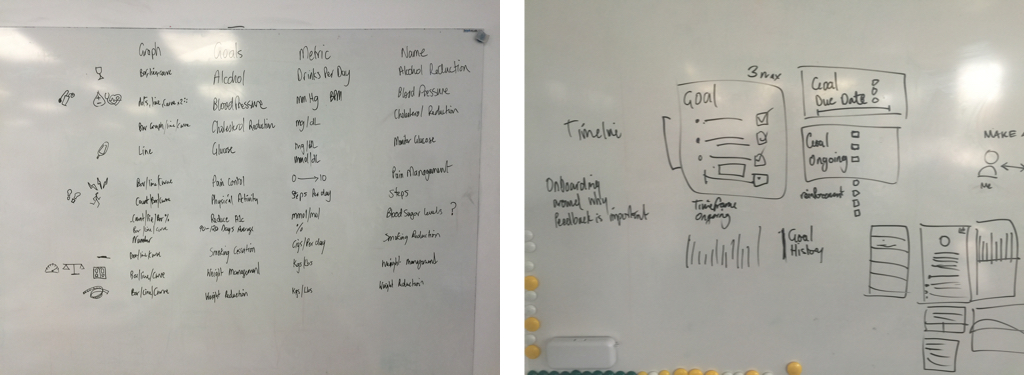 Graph Goals Metric Name
Bar/line/curve Alcohol Drinks Per Day Alcohol Reduction
Blood Pressure mm Hg BPM Blood Pressure
Bar Graph/line/curve Cholesterol Reduction mg/dL Cholesterol Reduction
Line Glucose mg/dL Monitor Glucose
mmol/dL
Bar/line/curve Pain Control 0 → 10 Pain Management
Physical Activity Steps Per day Steps
Reduce A1c mmol/mol Blood Sugar Levels ?
Bar/line/curve 90-120 Days Average %
Number
Bar/line/curve Smoking Cessation Cigs/Per day Smoking Reduction
Bar/line/curve Weight Management Kgs/lbs Weight Management
Bar/Line/Curve Weight Reduction Kgs/Lbs Weight Reduction
3 max
Goal
Timeline
Timeframe
Ongoing
Goal
Due Date
Goal
Ongoing
reinforcement
Onboarding
Feedback is important
Goal
History
MAKE
ME